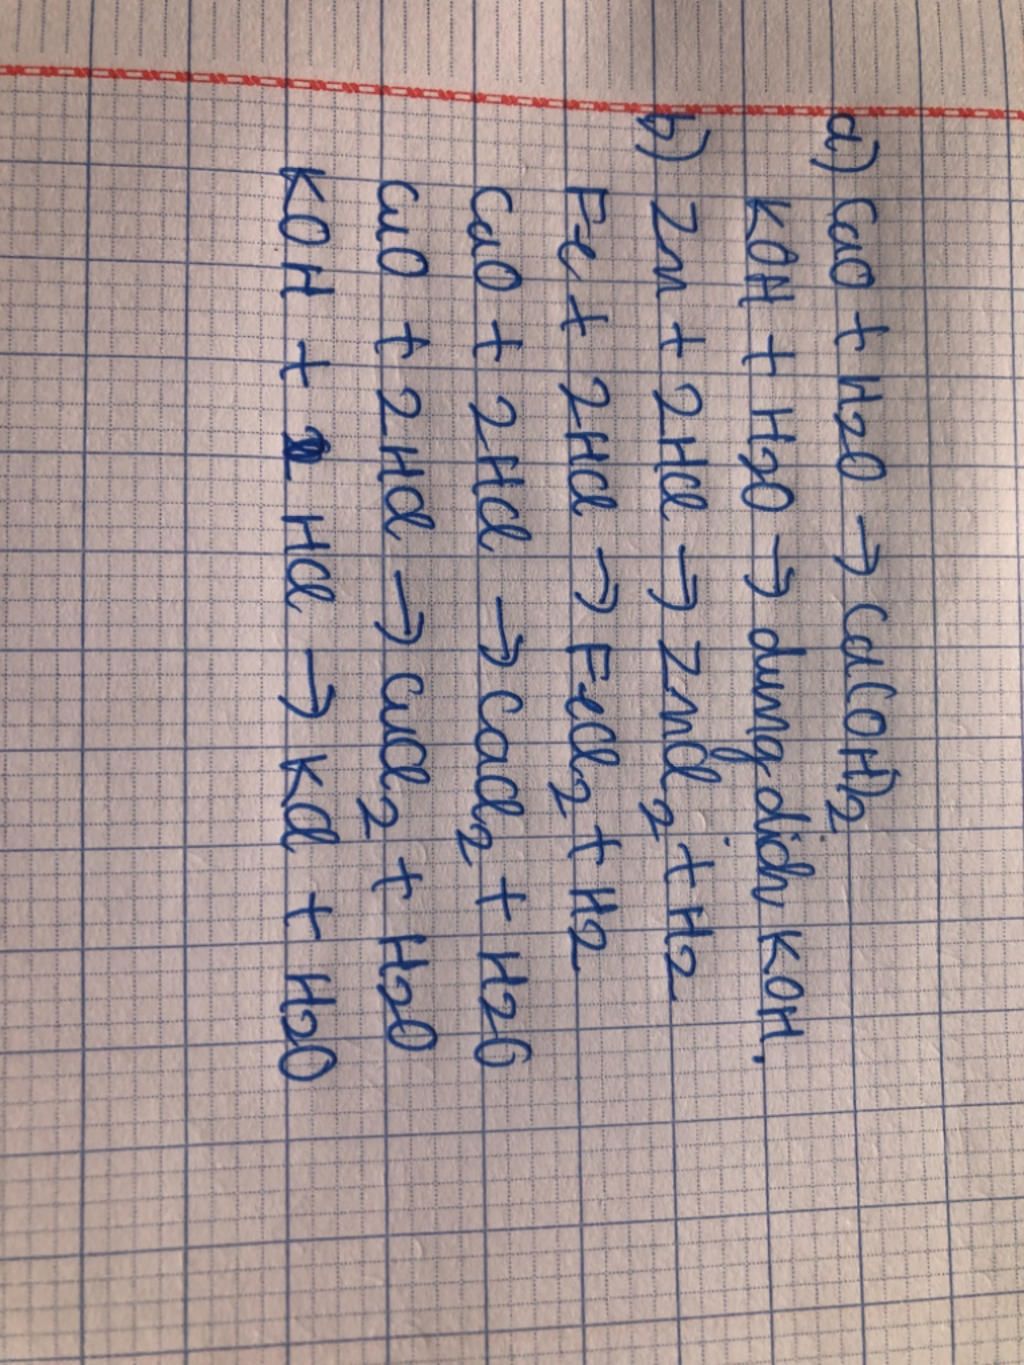 a) CaO + H2O → Ca(OH)2
KOH + H2O → dung dịch KOH.
b) Zn + 2HCl → ZnCl2 + H2
Fe + 2HCl → FeCl2 + H2
CaO + 2HCl → CaCl2 + H2O
CuO + 2HCl → CuCl2 + H2O
KOH + HCl → KCl + H2O